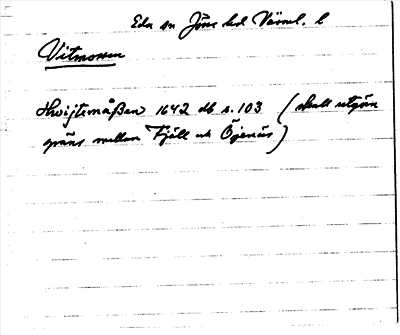 Eda sn Jösse hd Värml. l
Vitmossen
Hwijtemåßan 1642 db s. 103 (skall utgöra
gräns mellan Fjäll och Ögenäs)